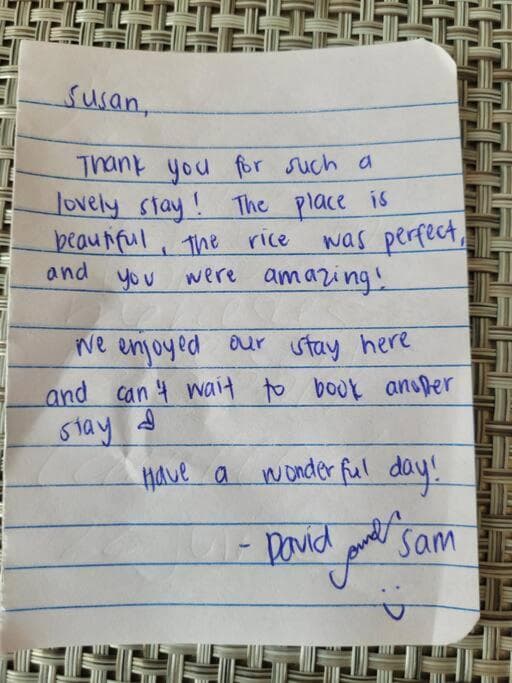 Susan,
Thank you for such a
lovely stay! The place is
beautiful, the rice was perfect,
and you were amazing!
We enjoyed our stay here
and can't wait to book another
stay
Have a wonderful day!
- David and Sam